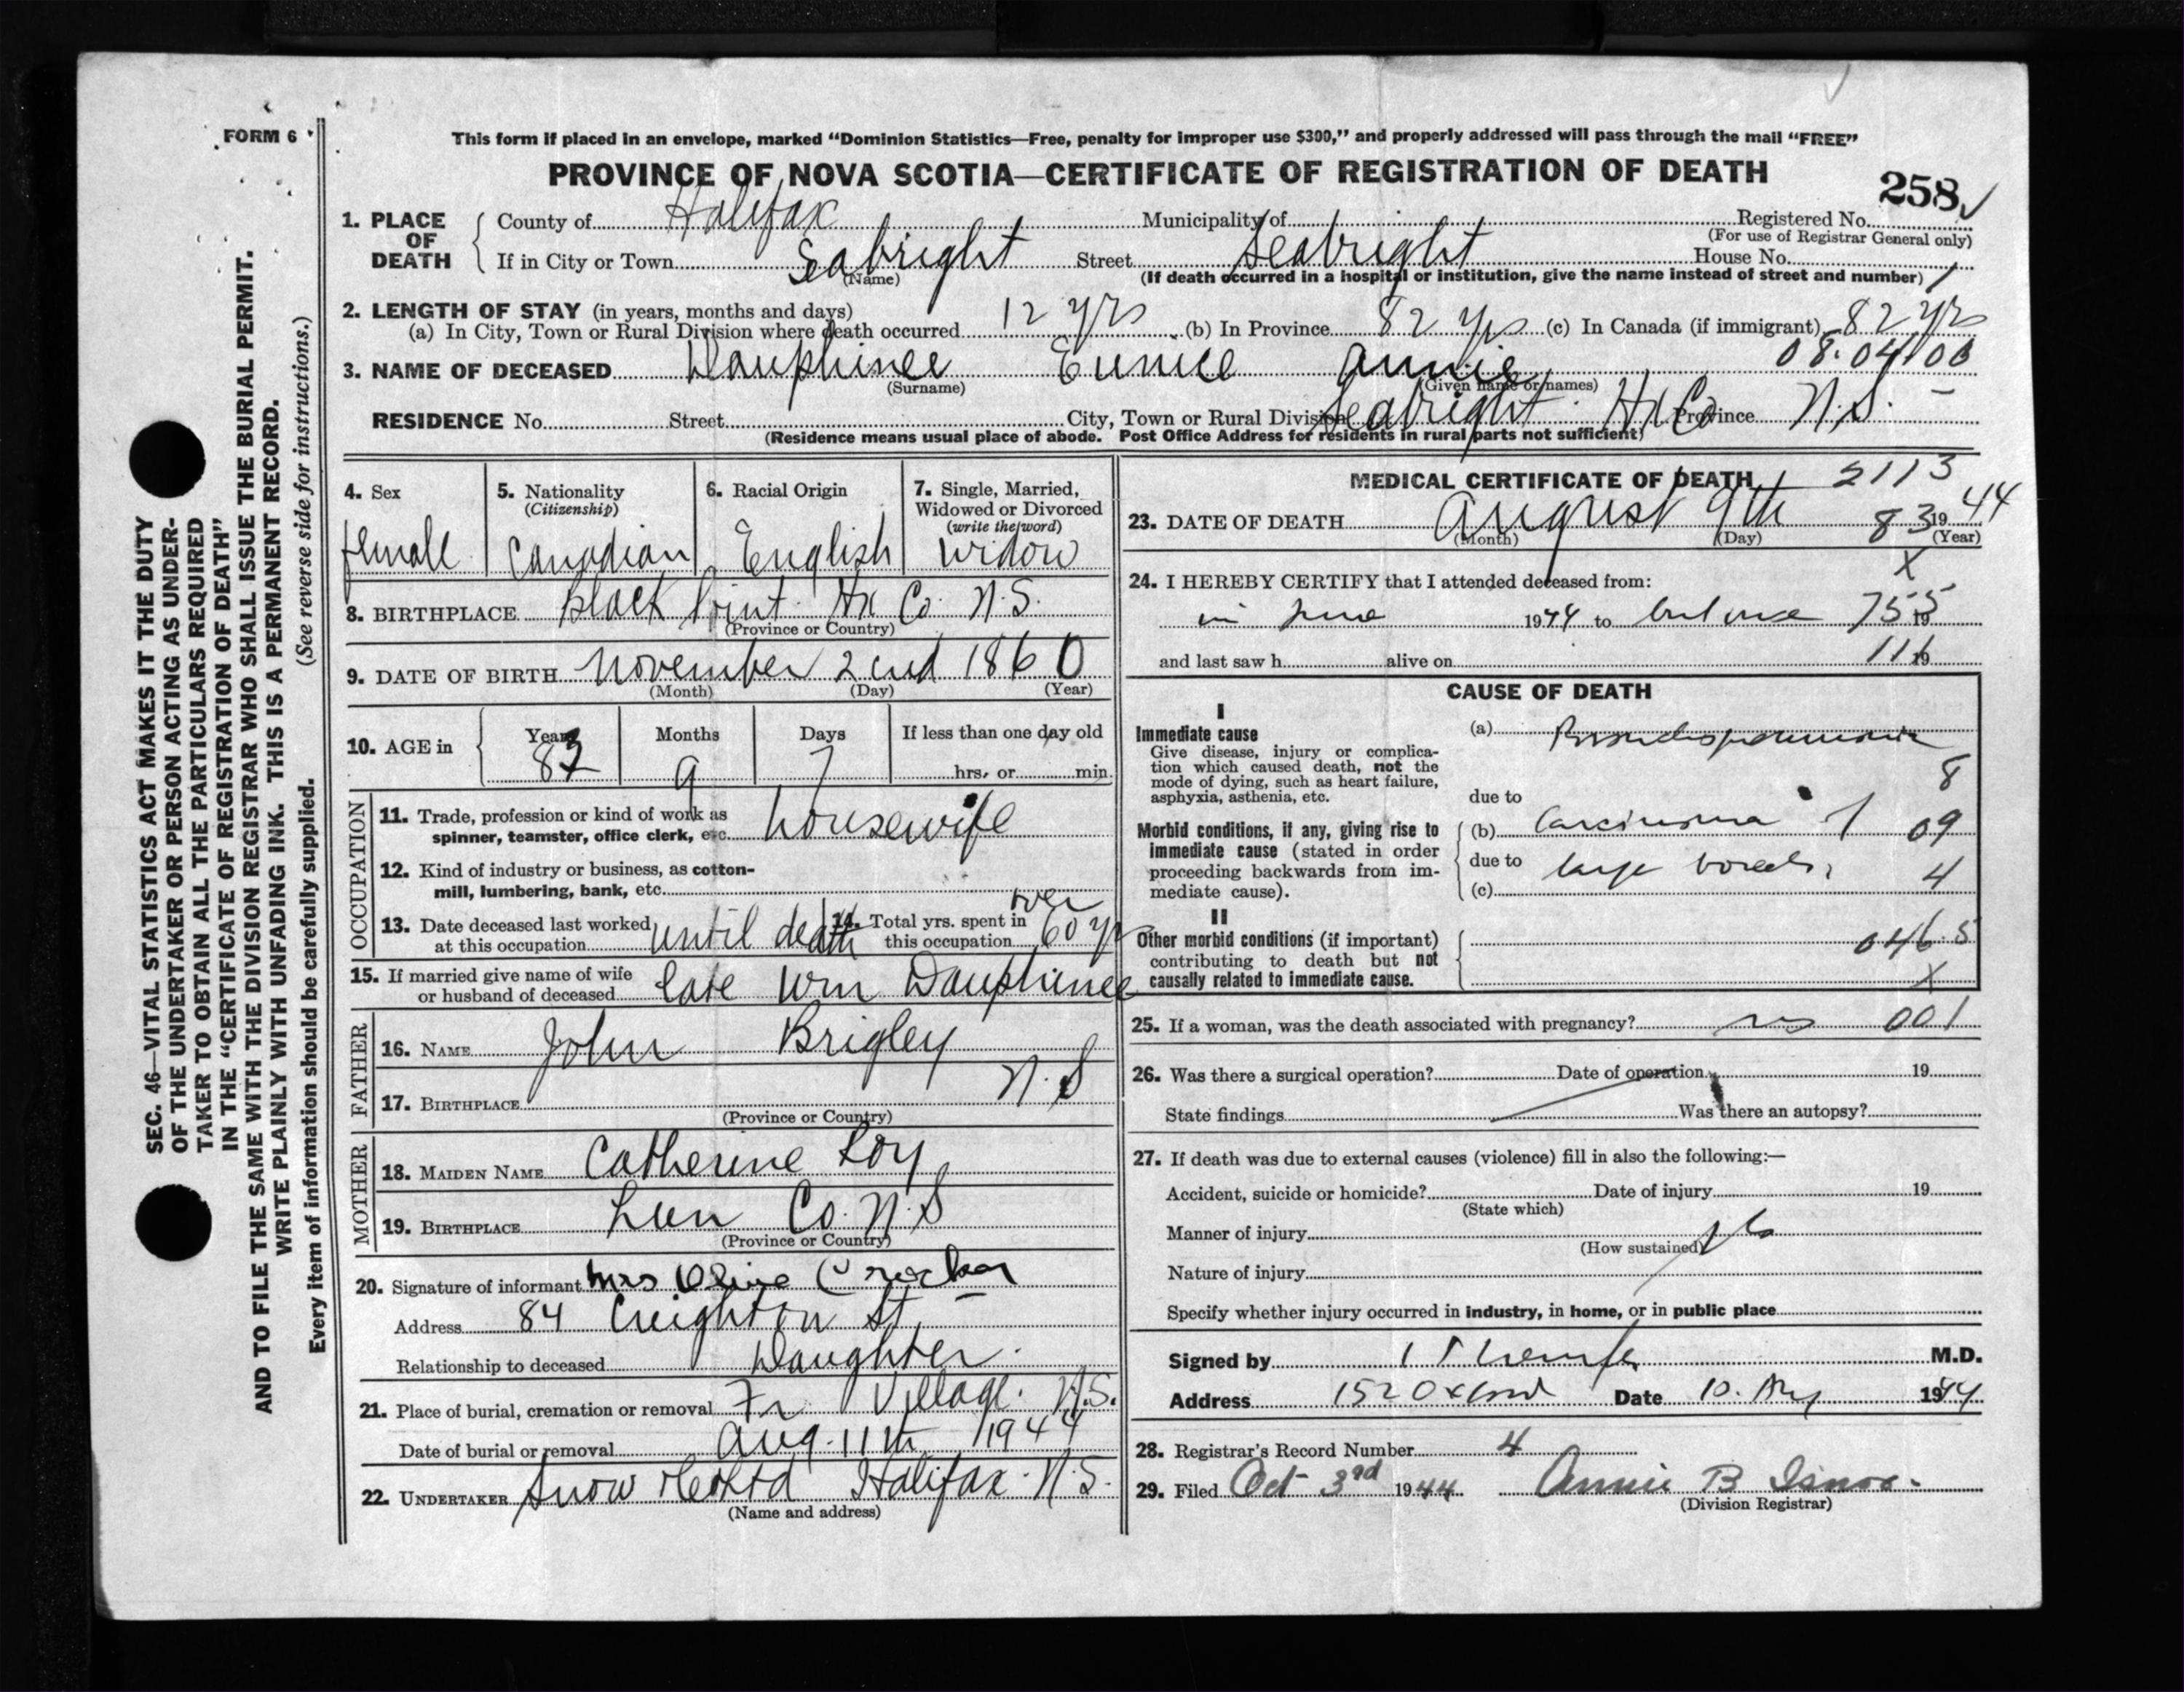 FORM 6
This form if placed in an envelope, marked “Dominion Statistics—Free, penalty for improper use $300,” and properly addressed will pass through the mail “FREE”
PROVINCE OF NOVA SCOTIA—CERTIFICATE OF REGISTRATION OF DEATH
258
1. PLACE OF DEATH
County of Halifax Municipality of Registered No.
(For use of Registrar General only)
If in City or Town Seabright Street Seabright House No.
(Name) (If death occurred in a hospital or institution, give the name instead of street and number)
2. LENGTH OF STAY (in years, months and days)
(a) In City, Town or Rural Division where death occurred 12 yrs (b) In Province 82 yrs (c) In Canada (if immigrant) 82 yrs
3. NAME OF DECEASED Dauphinee Eunice Annie 08.04.00
(Surname) (Given name or names)
RESIDENCE No. Street City, Town or Rural Division Seabright Hx Co Province N.S.
(Residence means usual place of abode. Post Office Address for residents in rural parts not sufficient)
4. Sex
female
5. Nationality
(Citizenship)
Canadian
6. Racial Origin
English
7. Single, Married, Widowed or Divorced
(write the word)
Widow
8. BIRTHPLACE Black Point Hx Co. N.S.
(Province or Country)
9. DATE OF BIRTH November 2nd 1860
(Month) (Day) (Year)
10. AGE in Years Months Days If less than one day old
83 9 7 hrs. or min.
OCCUPATION
11. Trade, profession or kind of work as
spinner, teamster, office clerk, etc. housewife
12. Kind of industry or business, as cotton-
mill, lumbering, bank, etc.
13. Date deceased last worked
at this occupation until death
14. Total yrs. spent in
this occupation over 60 yrs
15. If married give name of wife
or husband of deceased late Wm Dauphinee
FATHER
16. NAME John Brigley
17. BIRTHPLACE N.S
(Province or Country)
MOTHER
18. MAIDEN NAME Catherine Loy
19. BIRTHPLACE Lun Co. N.S
(Province or Country)
20. Signature of informant Mrs Olive Crocker
Address 84 Creighton St
Relationship to deceased Daughter.
21. Place of burial, cremation or removal Fr Village. N.S.
Date of burial or removal Aug. 11th 1944
22. UNDERTAKER Snow & Co Ltd Halifax. N.S.
(Name and address)
MEDICAL CERTIFICATE OF DEATH 2113
23. DATE OF DEATH August 9th 83 1944
(Month) (Day) (Year)
X
24. I HEREBY CERTIFY that I attended deceased from:
in June 1944 to 755 19
and last saw h alive on 116 19
CAUSE OF DEATH
I
Immediate cause
Give disease, injury or complica-
tion which caused death, not the
mode of dying, such as heart failure,
asphyxia, asthenia, etc.
(a) Bronchopneumonia
8
due to
Morbid conditions, if any, giving rise to
immediate cause (stated in order
proceeding backwards from im-
mediate cause).
(b) Carcinoma of 09
due to large bowel
(c) 4
II
Other morbid conditions (if important)
contributing to death but not
causally related to immediate cause.
046.5
X
25. If a woman, was the death associated with pregnancy? no 001
26. Was there a surgical operation? Date of operation 19
State findings Was there an autopsy?
27. If death was due to external causes (violence) fill in also the following:—
Accident, suicide or homicide? Date of injury 19
(State which)
Manner of injury
(How sustained)
Nature of injury
Specify whether injury occurred in industry, in home, or in public place
Signed by M.D.
Address 152 Oxford Date 10. Aug 1944
28. Registrar's Record Number 4
29. Filed Oct 3rd 1944 Annie B Isnor
(Division Registrar)
SEC. 46—VITAL STATISTICS ACT MAKES IT THE DUTY
OF THE UNDERTAKER OR PERSON ACTING AS UNDER-
TAKER TO OBTAIN ALL THE PARTICULARS REQUIRED
IN THE “CERTIFICATE OF REGISTRATION OF DEATH”
AND TO FILE THE SAME WITH THE DIVISION REGISTRAR WHO SHALL ISSUE THE BURIAL PERMIT.
WRITE PLAINLY WITH UNFADING INK. THIS IS A PERMANENT RECORD.
Every item of information should be carefully supplied. (See reverse side for instructions.)